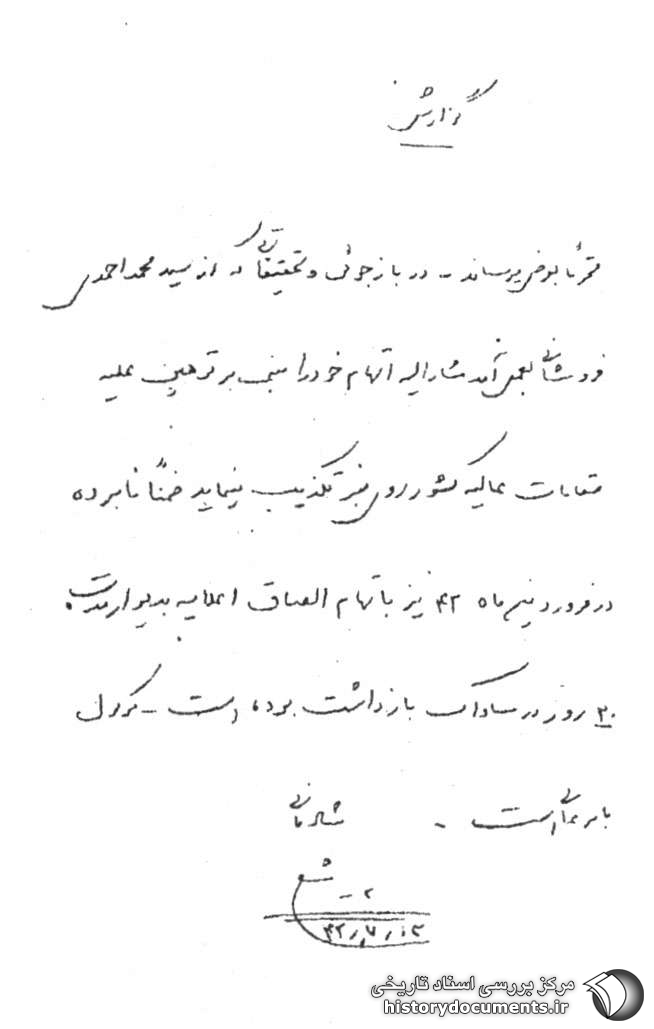 گزارش
محترماً بعرض میرساند - در بازجوئی و تحقیقاتی که از سید محمد احمدی
فروشانی بعمل آمد مشارالیه اتهام خود را مبنی بر توهین علیه
مقامات عالیه کشور روی منبر تکذیب مینماید ضمناً نامبرده
در فروردین ماه ۴۲ نیز باتهام الصاق اعلامیه بدیوار مدت
۲۰ روز در ساواک بازداشت بوده است - موکول
بامر عالی است - شادمانی
۴۲/۷/۱۳
مرکز بررسی اسناد تاریخی
historydocuments.ir